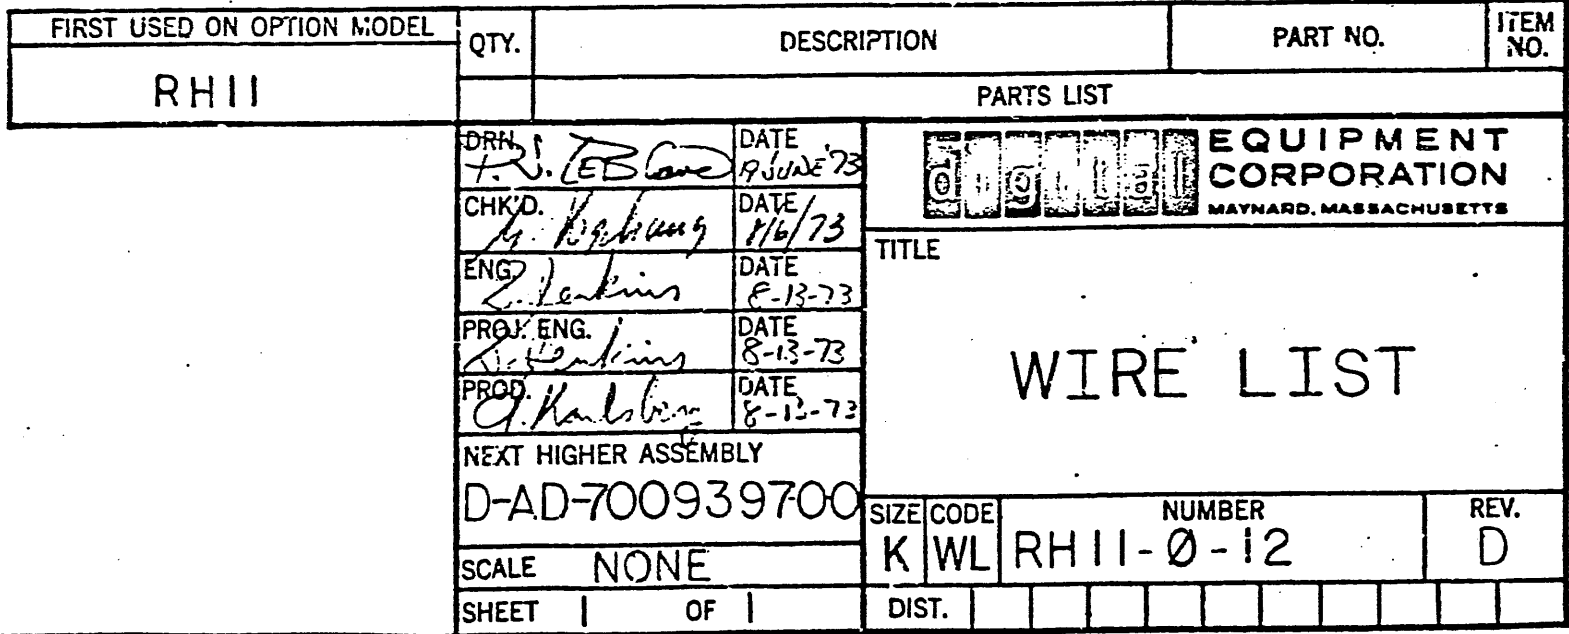 FIRST USED ON OPTION MODEL
RH11
QTY.
DESCRIPTION
PART NO.
ITEM NO.
PARTS LIST
DRN.
DATE
9 JUNE '73
CHK'D.
DATE
8/6/73
ENG.
DATE
8-13-73
PROJ. ENG.
DATE
8-13-73
PROD.
DATE
8-13-73
NEXT HIGHER ASSEMBLY
D-AD-7009397-00
SCALE NONE
SHEET 1 OF 1
digital EQUIPMENT
CORPORATION
MAYNARD, MASSACHUSETTS
TITLE
WIRE LIST
SIZE CODE NUMBER REV.
K WL RH11-Ø-12 D
DIST.